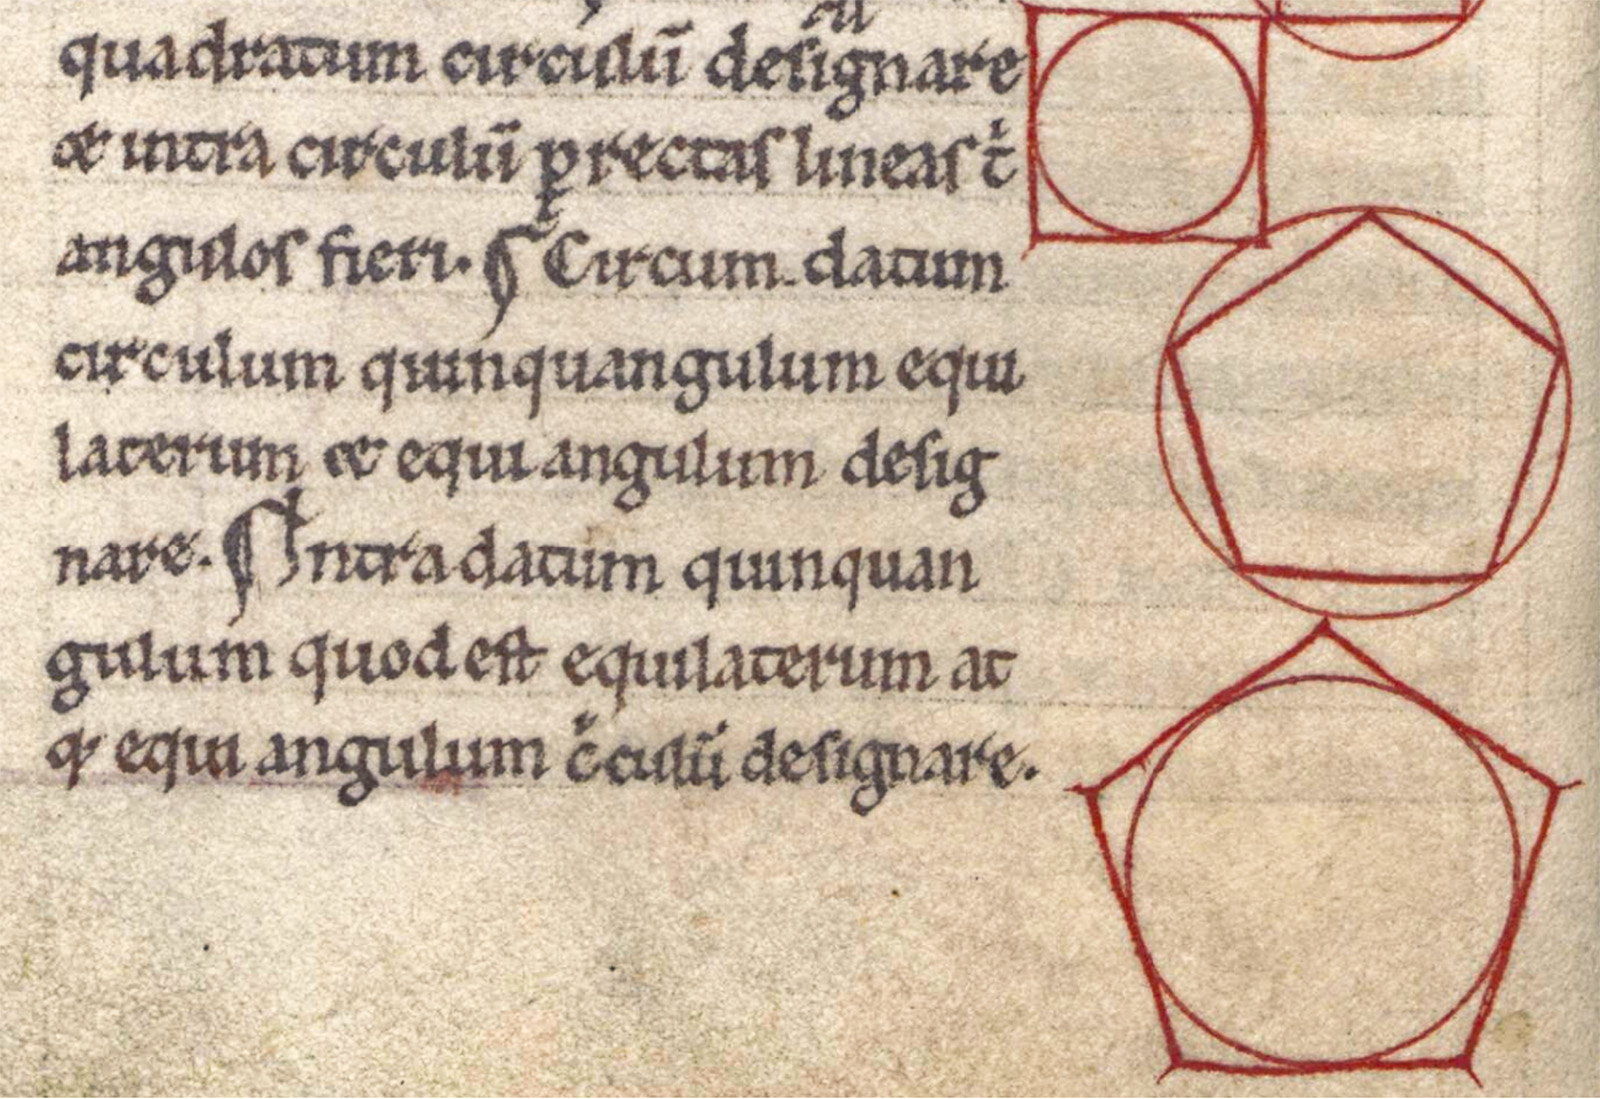 quadratum circulū designare
et intra circulū ꝑ rectas lineas t᷑
angulos fieri. ¶ Circum datum
circulum quinquangulum equi
laterum et equi angulum desig
nare. ¶ Intra datum quinquan
gulum quod est equilaterum at
qꝫ equi angulum c᷑culū designare.